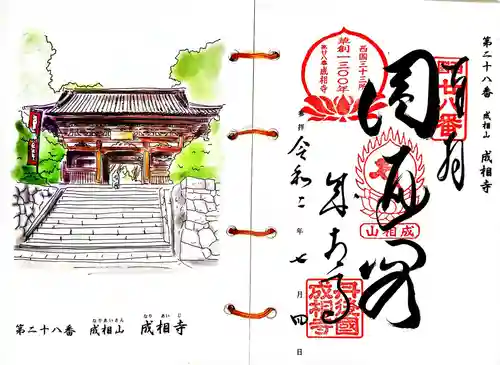 第二十八番 成相山 成相寺
なりあいさん なりあいじ
第二十八番 成相山 成相寺
西国三十三所
草創一三〇〇年
第廿八番 成相寺
廿八番
奉拝 令和二年七月四日
成相山
成相寺
丹後國
成相寺